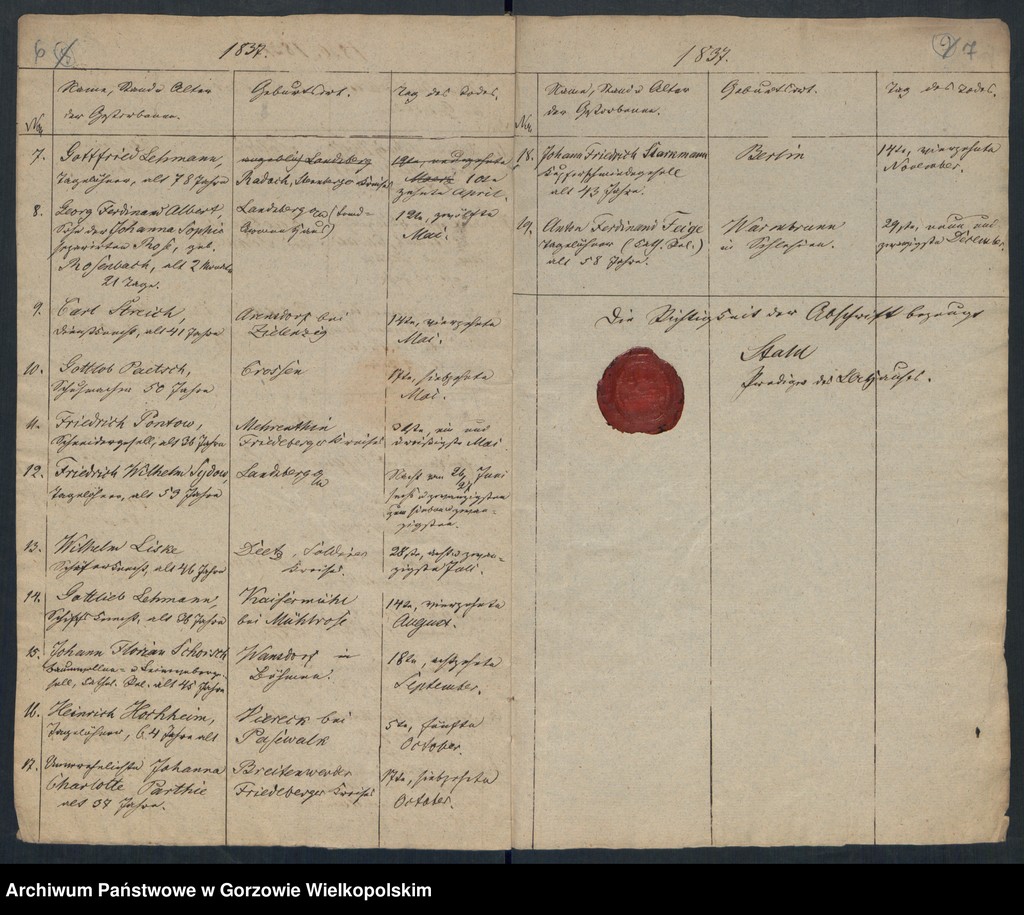 6
1837.
Name, Stand u Alter
der Gestorbenen.
Geburtsort.
Tag des Todes.
No.
7. Gottfried Lehmann,
Tagelöhner, alt 78 Jahre
angeblich Landsberg
Radach, Sternberger Kreises
19te, neunzehnte
März 10te
zehnte April.
8. Georg Ferdinand Albert,
Sohn der Johanna Sophie
separirten Rose, geb.
Rosenbach, alt 2 Monate
21 Tage.
Landsberg a/W (Land-
Armenhaus)
12te, zwölfte
Mai.
9. Carl Streich,
Dienstknecht, alt 41 Jahre
Arensdorf bei
Zielenzig
14te, vierzehnte
Mai.
10. Gottlob Paitsch,
Schuhmacher 50 Jahre
Crossen
17te, siebzehnte
Mai.
11. Friedrich Pontow,
Schneidergesell, alt 36 Jahre
Mehrenthin
Friedeberger Kreises
31ste, ein und
dreißigste Mai
12. Friedrich Wilhelm Sydow,
Tagelöhner, alt 53 Jahre
Landsberg a/W
Nacht vom 26/27 Juni
sechs u zwanzigsten
zum siebenzwan-
zigsten.
13. Wilhelm Liske
Schäferknecht, alt 46 Jahre
Zeetz, Soldiner
Kreises.
28ste, acht u zwan-
zigste Juli.
14. Gottlieb Lehmann,
Schiffsknecht, alt 38 Jahre
Kaisermühl
bei Mühlrose
14te, vierzehnte
August.
15. Johann Florian Schorsch
Baumwollen- u Leinweberge-
sell, Cathol. Rel. alt 45 Jahre
Wansdorf in
Böhmen.
18te, achtzehnte
September.
16. Heinrich Hochheim,
Tagelöhner, 64 Jahre alt
Viereck bei
Pasewalk
5te, fünfte
October.
17. Unverehelichte Johanna
Charlotte Parthie
alt 37 Jahre.
Breitenwerder
Friedeberger Kreises
17te, siebzehnte
October.
7
1837.
Name, Stand u Alter
der Gestorbenen.
Geburtsort.
Tag des Todes.
No.
18. Johann Friedrich Starnmann
Kupferschmiedegesell
alt 43 Jahre.
Berlin
14te, vierzehnte
November.
19. Anton Ferdinand Feige
Tagelöhner (Cath. Rel.)
alt 58 Jahre.
Warmbrunn
in Schlesien.
29ste, neun und
zwanzigste December.
Die Richtigkeit der Abschrift bezeugt
Prediger des
Archiwum Państwowe w Gorzowie Wielkopolskim